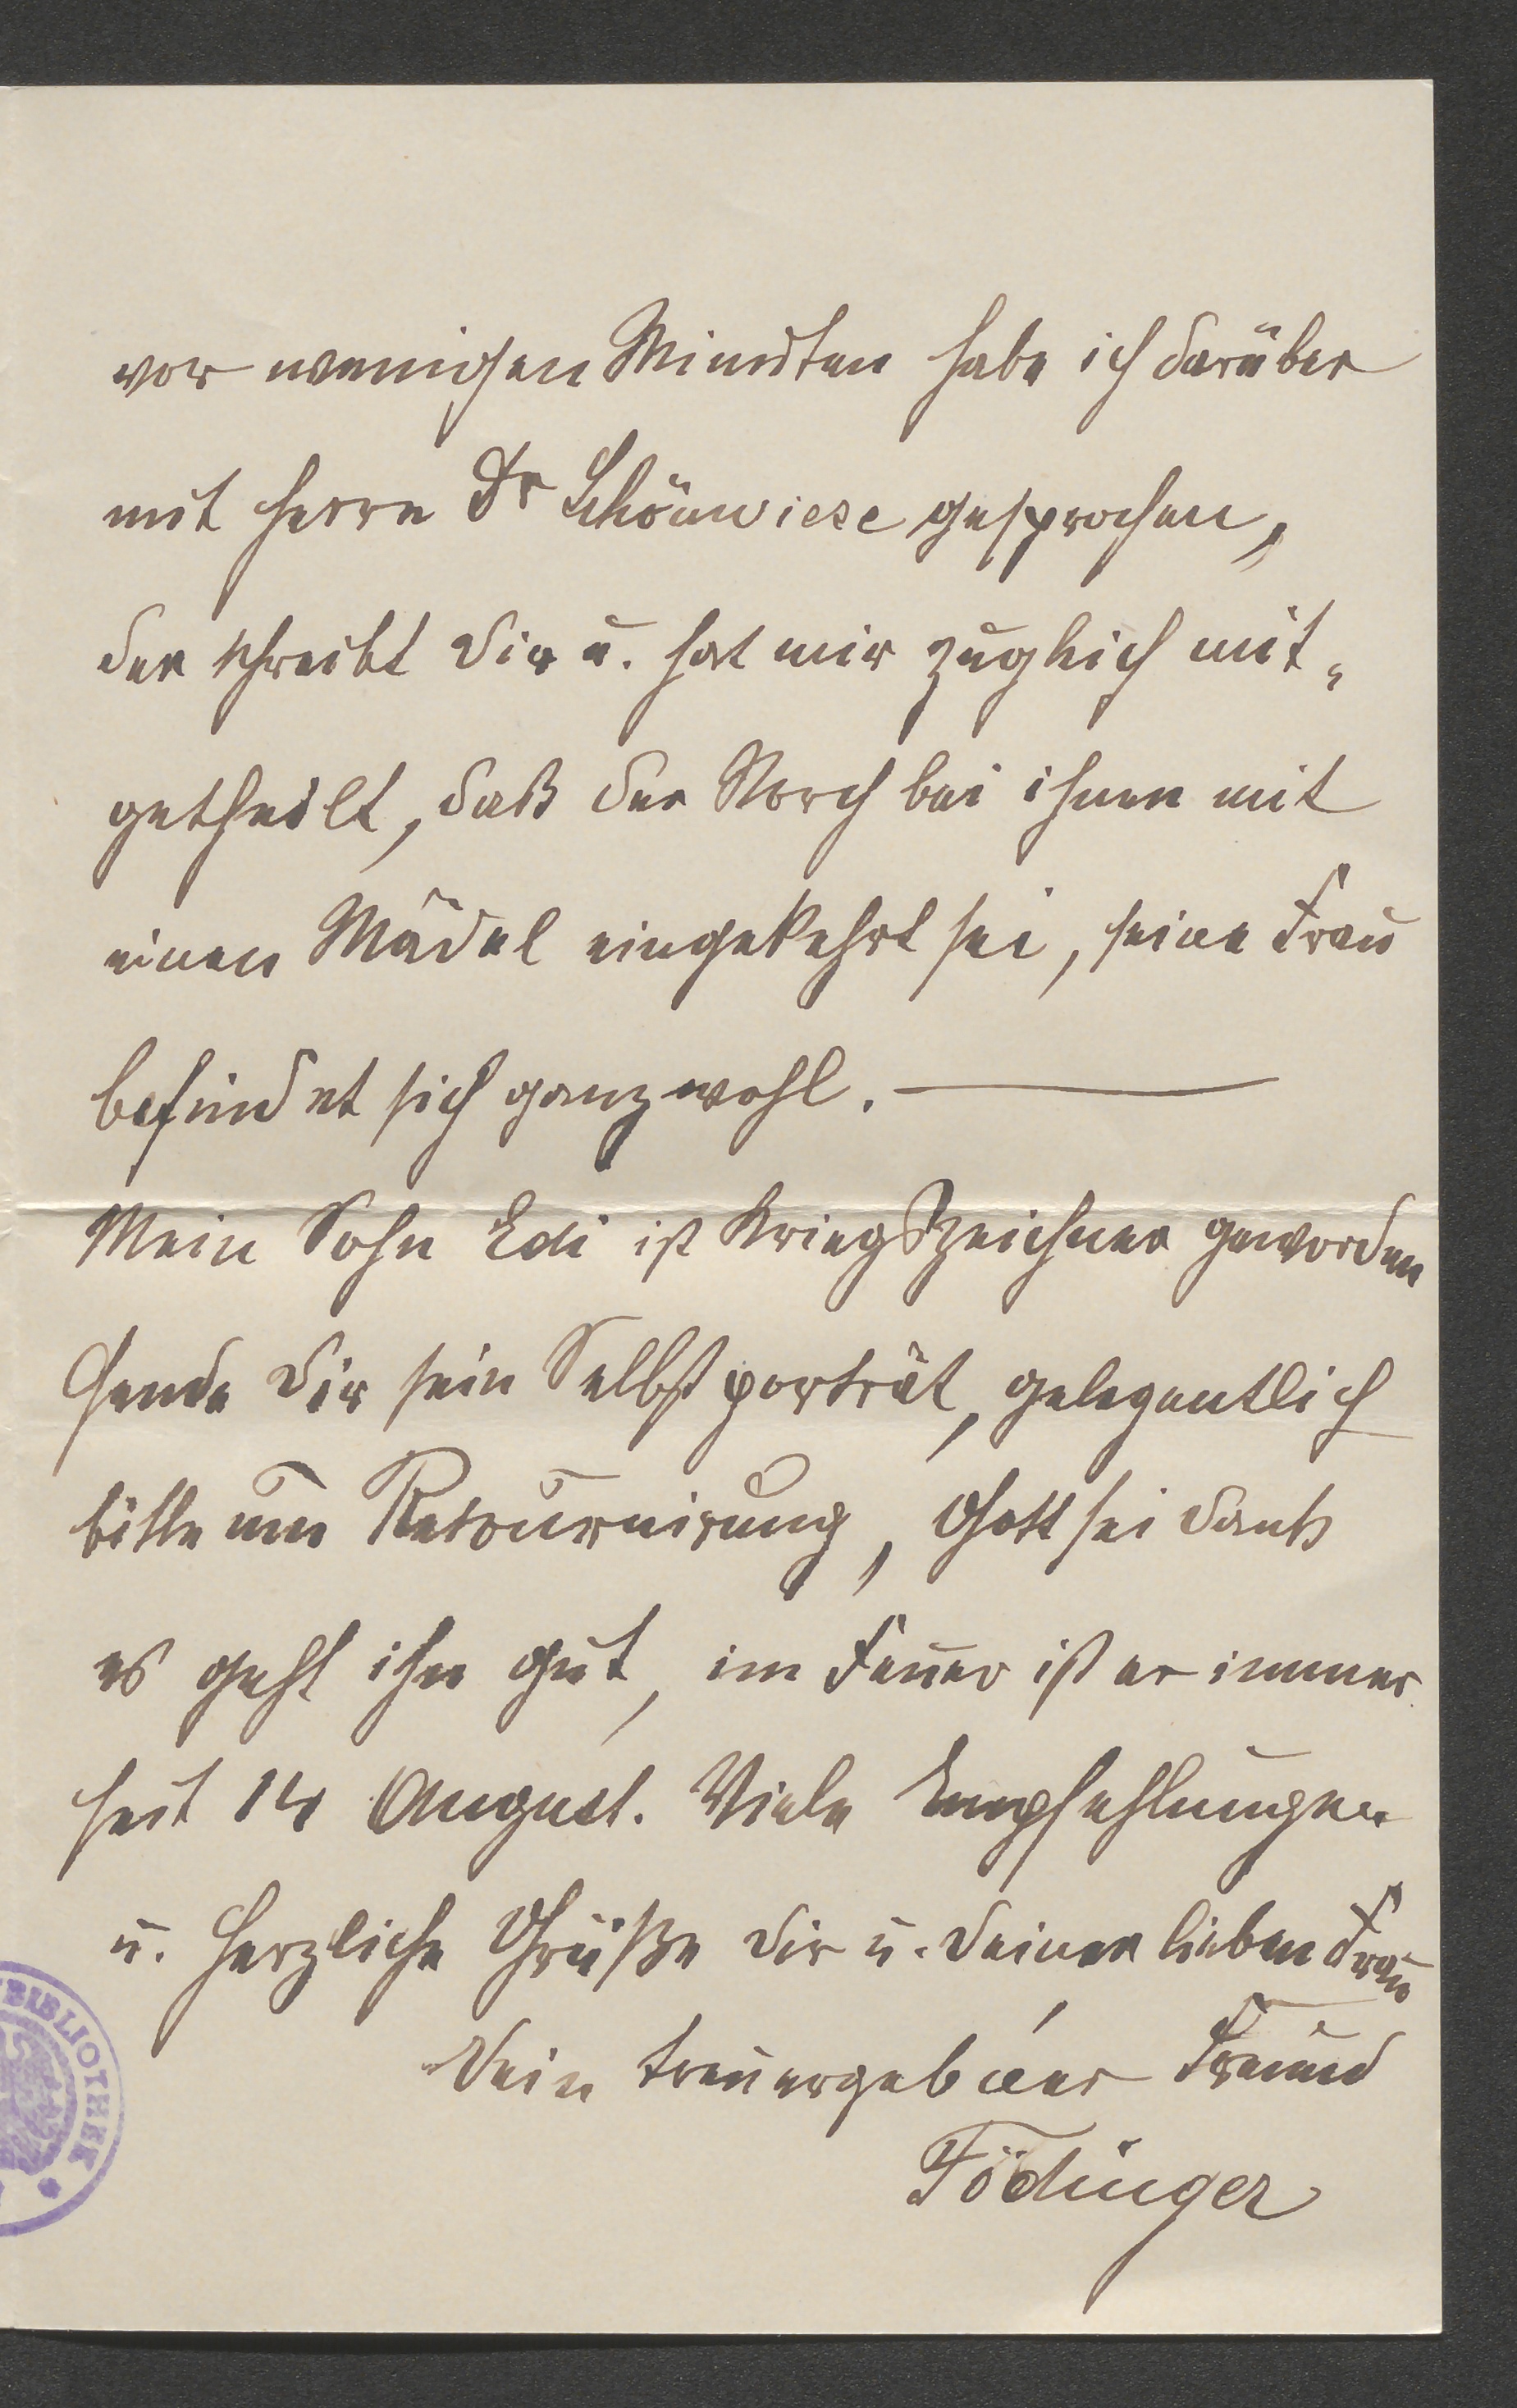 vor wenigen Minuten habe ich darüber
mit Herrn Dr Schönwiese gesprochen,
der schreibt dir u. hat mir zugleich mit-
getheilt, daß der Storch bei ihnen mit
einen Mädel eingekehrt sei, seine Frau
befindet sich ganz wohl. —
Mein Sohn Edi ist Kriegszeichner geworden
Sende dir sein Selbstporträt, gelegentlich
bitte um Retournirung, Gott sei dank
es geht ihn gut, im Feuer ist er immer
seit 14 August. Viele Empfehlungen
u. herzliche Grüße dir u. deiner lieben Frau
Dein treuergebener Freund
Födinger
BIBLIOTHEK